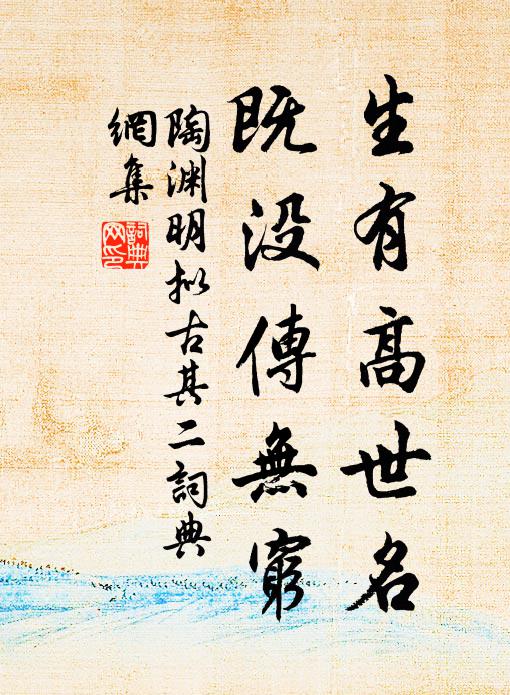 生有高世名
既没傳無窮
陶渊明拟古其二詞典
網集
詞典
网印